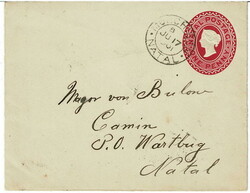 NATAL POSTAGE
JU 17
NATAL
Major von Bülow
Camin
P.O. Wartburg
Natal